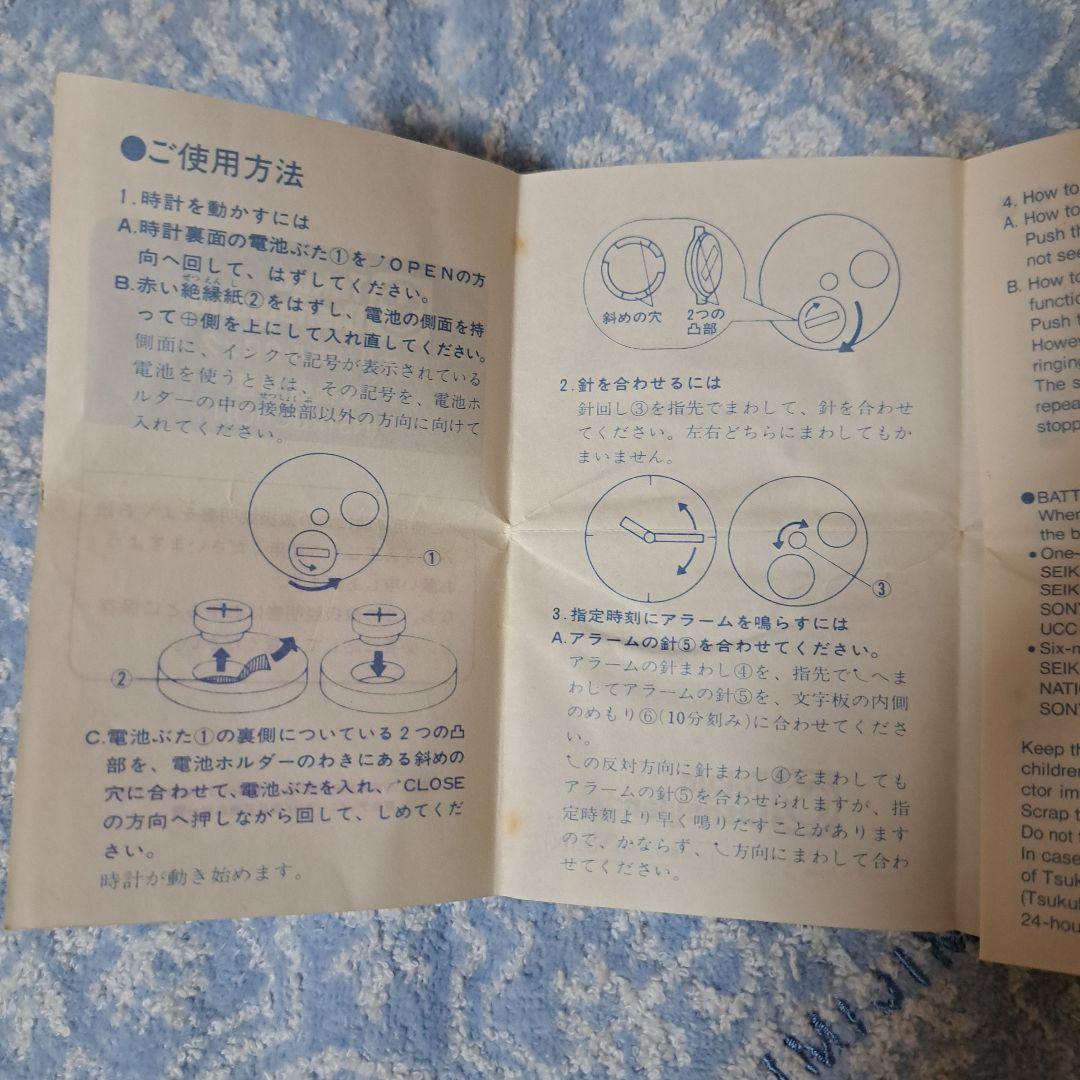 ●ご使用方法
1.時計を動かすには
A.時計裏面の電池ぶた①を⤴OPENの方
向へ回して、はずしてください。
ぜつえんし
B.赤い絶縁紙②をはずし、電池の側面を持
って⊕側を上にして入れ直してください。
側面に、インクで記号が表示されている
電池を使うときは、その記号を、電池ホ
せっしょくぶ
ルダーの中の接触部以外の方向に向けて
入れてください。
①
②
C.電池ぶた①の裏側についている2つの凸
部を、電池ホルダーのわきにある斜めの
穴に合わせて、電池ぶたを入れ、⤴CLOSE
の方向へ押しながら回して、しめてくだ
さい。
時計が動き始めます。
斜めの穴
2つの
凸部
2.針を合わせるには
針回し③を指先でまわして、針を合わせ
てください。左右どちらにまわしてもか
まいません。
③
3.指定時刻にアラームを鳴らすには
A.アラームの針⑤を合わせてください。
アラームの針まわし④を、指先で⤹へま
わしてアラームの針⑤を、文字板の内側
のめもり⑥(10分刻み)に合わせてくださ
い。
⤹の反対方向に針まわし④をまわしても
アラームの針⑤を合わせられますが、指
定時刻より早く鳴りだすことがあります
ので、かならず、⤹方向にまわして合わ
せてください。
4. How to
A. How to
Push th
not see
B. How to
functio
Push t
Howev
ringing
The s
repea
stopp
●BATT
When
the b
•One-
SEIK
SEIK
SON
UCC
•Six-m
SEIK
NATI
SON
Keep th
children
ctor im
Scrap t
Do not
In case
of Tsuk
(Tsukul
24-hou